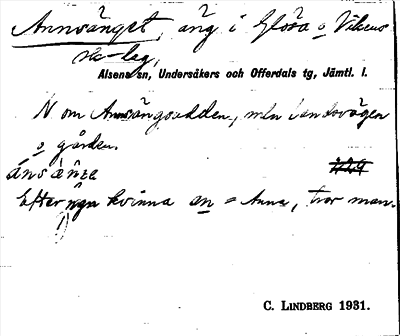 Annsänget, äng i Glösa o Vikens
sk-lag,
Alsens sn, Undersåkers och Offerdals tg, Jämtl. l.
N om Annsängsudden, mln landsvägen
o gården.
Efter ngn kvinna an = Anna, tror man.
C. LINDBERG 1931.